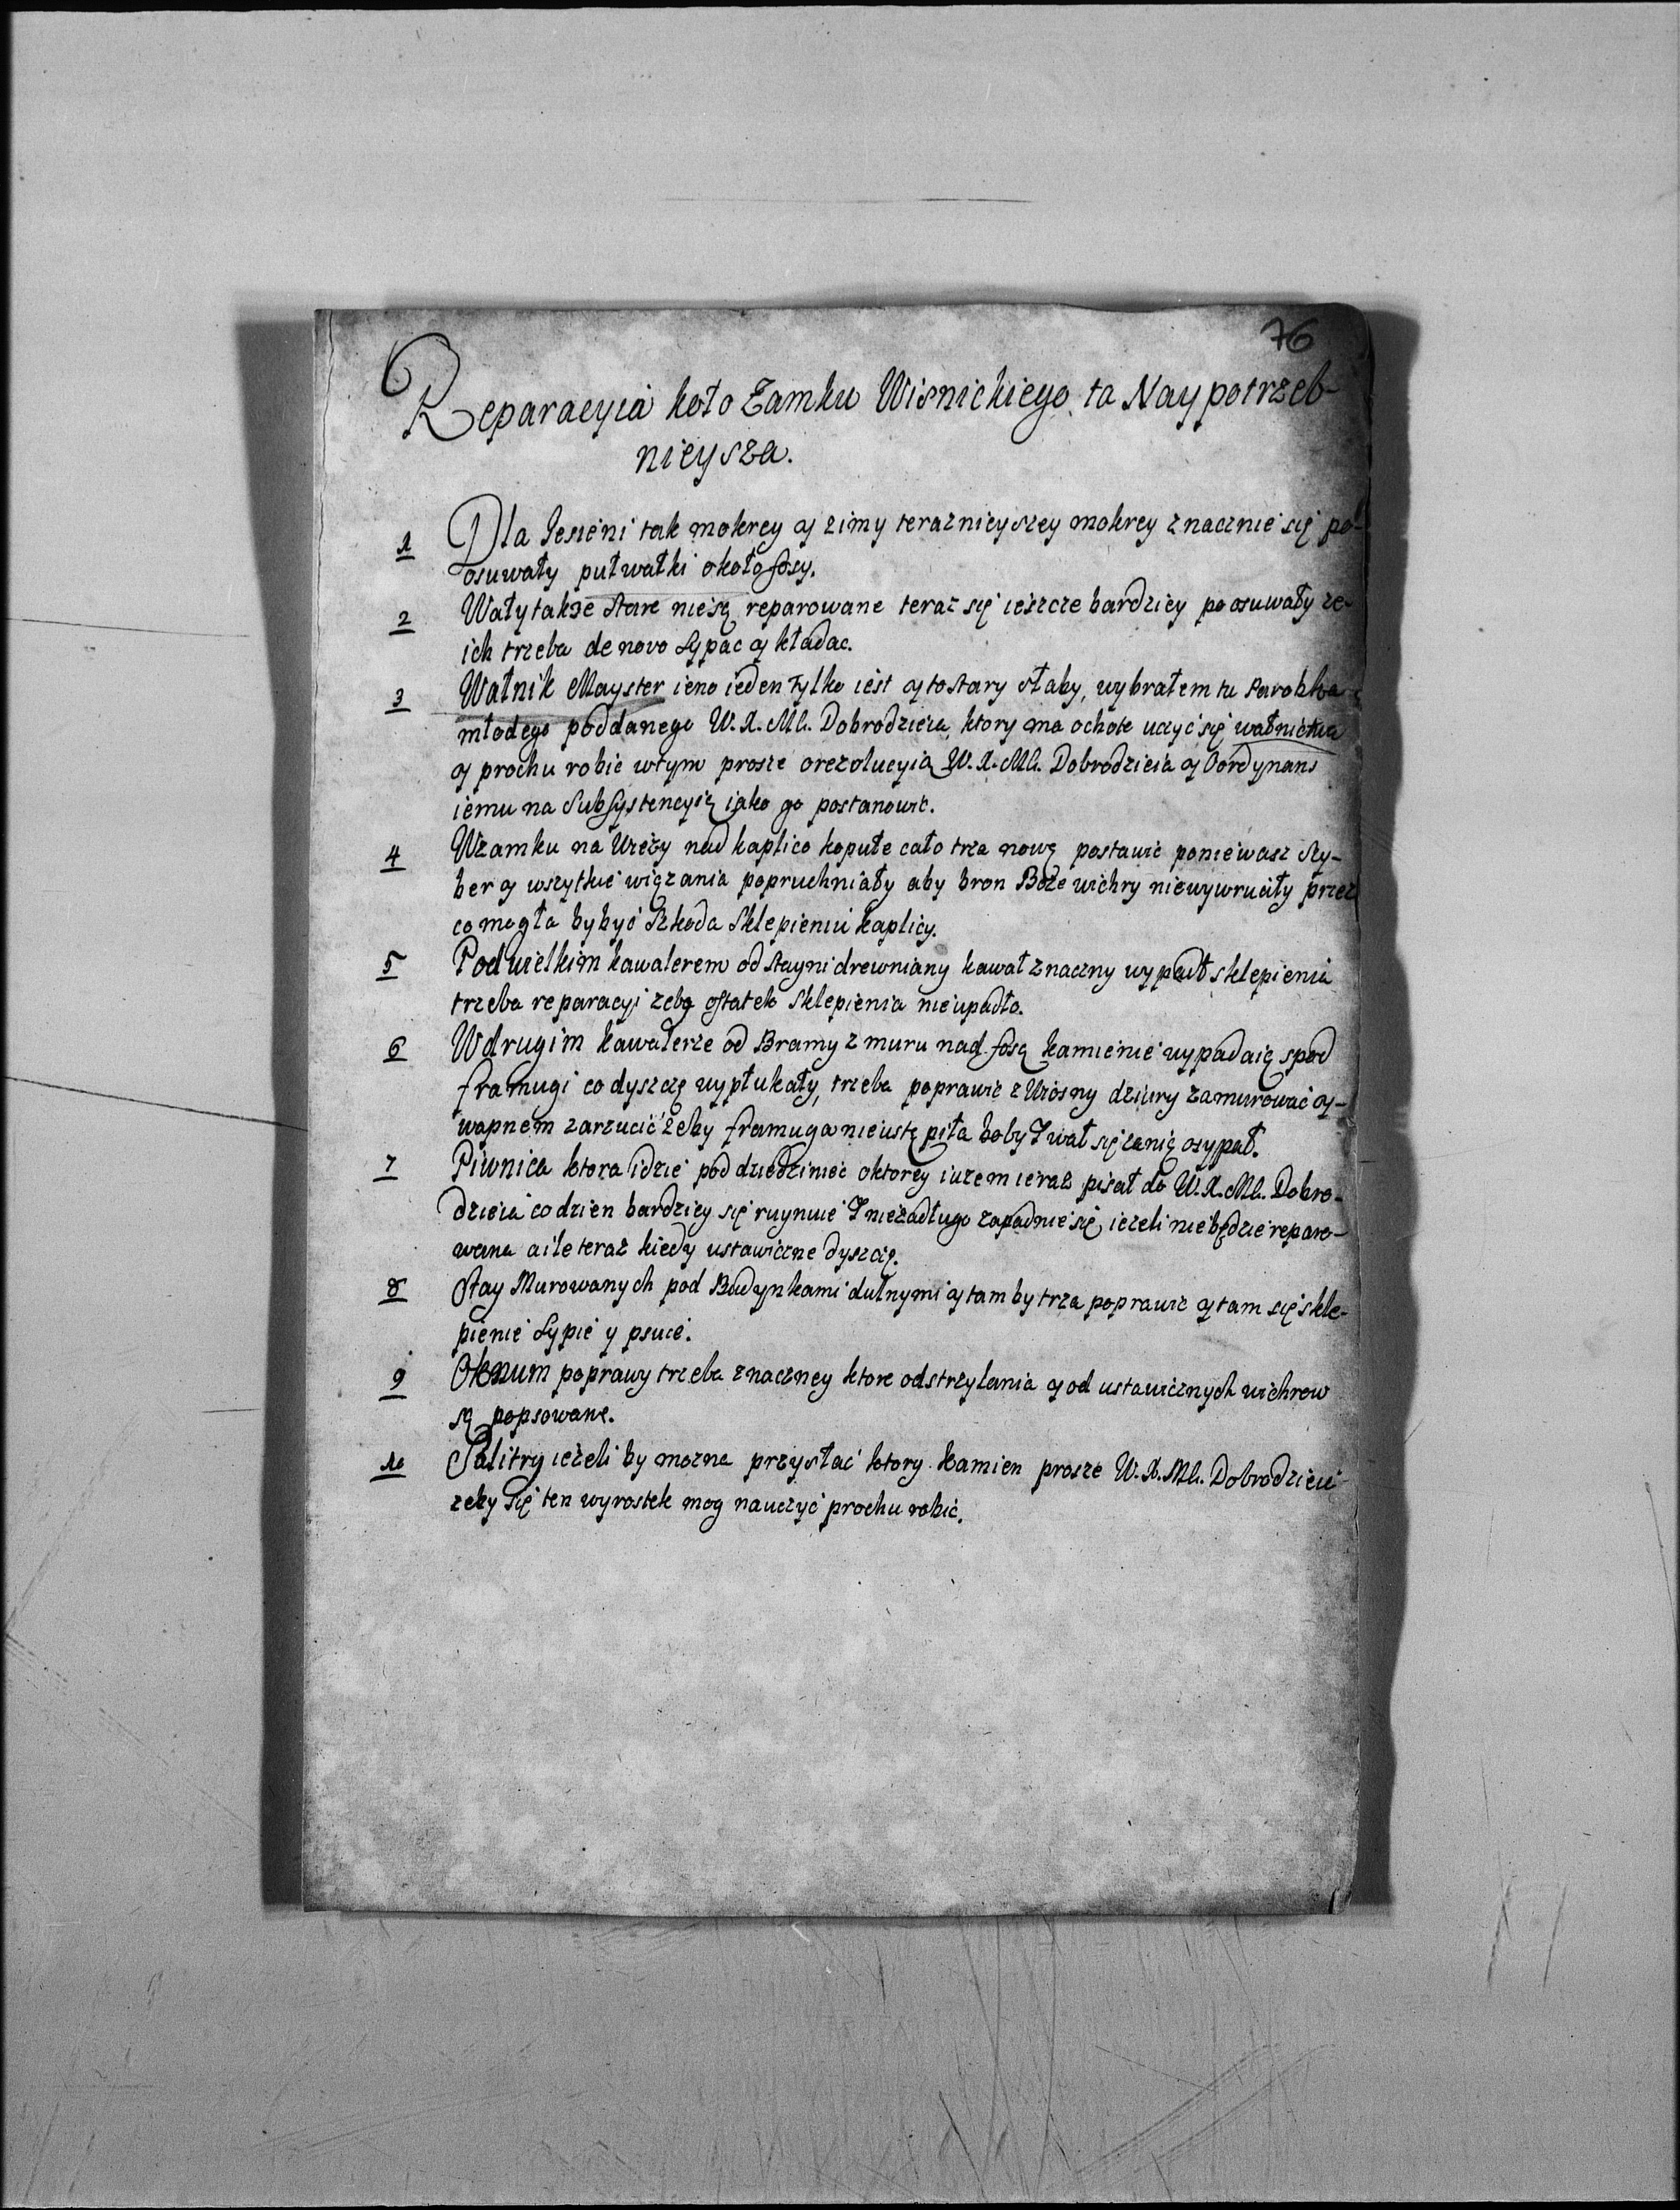 76
Reparacyia koło Zamku Wisnickiego ta Naypotrzeb-
nieysza.
1 Dla Jesieni tak mokrey y zimy teraznieyszey mokrey znacznie się po-
osuwały putwałki około fosy.
2 Wały takze stare niesą reparowane teraz się ieszcze bardziey poosuwały ze-
ich trzeba de novo Sypac y kładac.
3 Wałnik Mayster ieno ieden tylko iest y to stary słaby, wybrałem tu Parobka
młodego poddanego W. X. Mł. Dobrodzieia, ktory ma ochote uczyć się wałnictwa
y prochu robic wtym prosze orezolucyią W. X. Mł. Dobrodzieia y Oordynans
iemu na Subsystencyią iako go postanowic.
4 Wzamku na Wieży nad kaplico kopułe cało trza nową postawic poniewasz Szy-
ber y wszytkie wiązania popruchniały aby bron Boże wichry niewywruciły przez
co mogła by być szkoda Sklepieniu kaplicy.
5 Pod wielkim kawalerem od stayni drewniany kawał znaczny wypadł sklepienia
trzeba reparacyi zeby ostatek Sklepienia nieupadło.
6 Wdrugim kawalerze od Bramy z muru nad fosą kamienie wypadaią spod
framugi co dyszczę wypłukały, trzeba poprawic z Wiosny dziury zamurować y-
wapnem zarzucić żeby framuga nieustąpiła boby I wał się zanią osypał.
7 Piwnica ktora idzie pod dziedziniec oktorey iuzem ieraz pisał do W. X. Mł. Dobro-
dzieia codzien bardziey się ruynuie I niezadługo zapadnie się, iezeli niebędzie reparo-
wana aile teraz kiedy ustawiczne dyszczę.
8 Stay Murowanych pod Budynkami dułnymi y tam by trza poprawic y tam się skle-
pienie Sypie y psuie.
9 Oknum poprawy trzeba znaczney ktore odstrzylania y od ustawicznych wichrow
są popsowane.
10 Salitry ieżeli by mozna przysłać ktory kamien prosze W. X. Mł. Dobrodzieia
zeby się ten wyrostek mog nauczyć prochu robic.